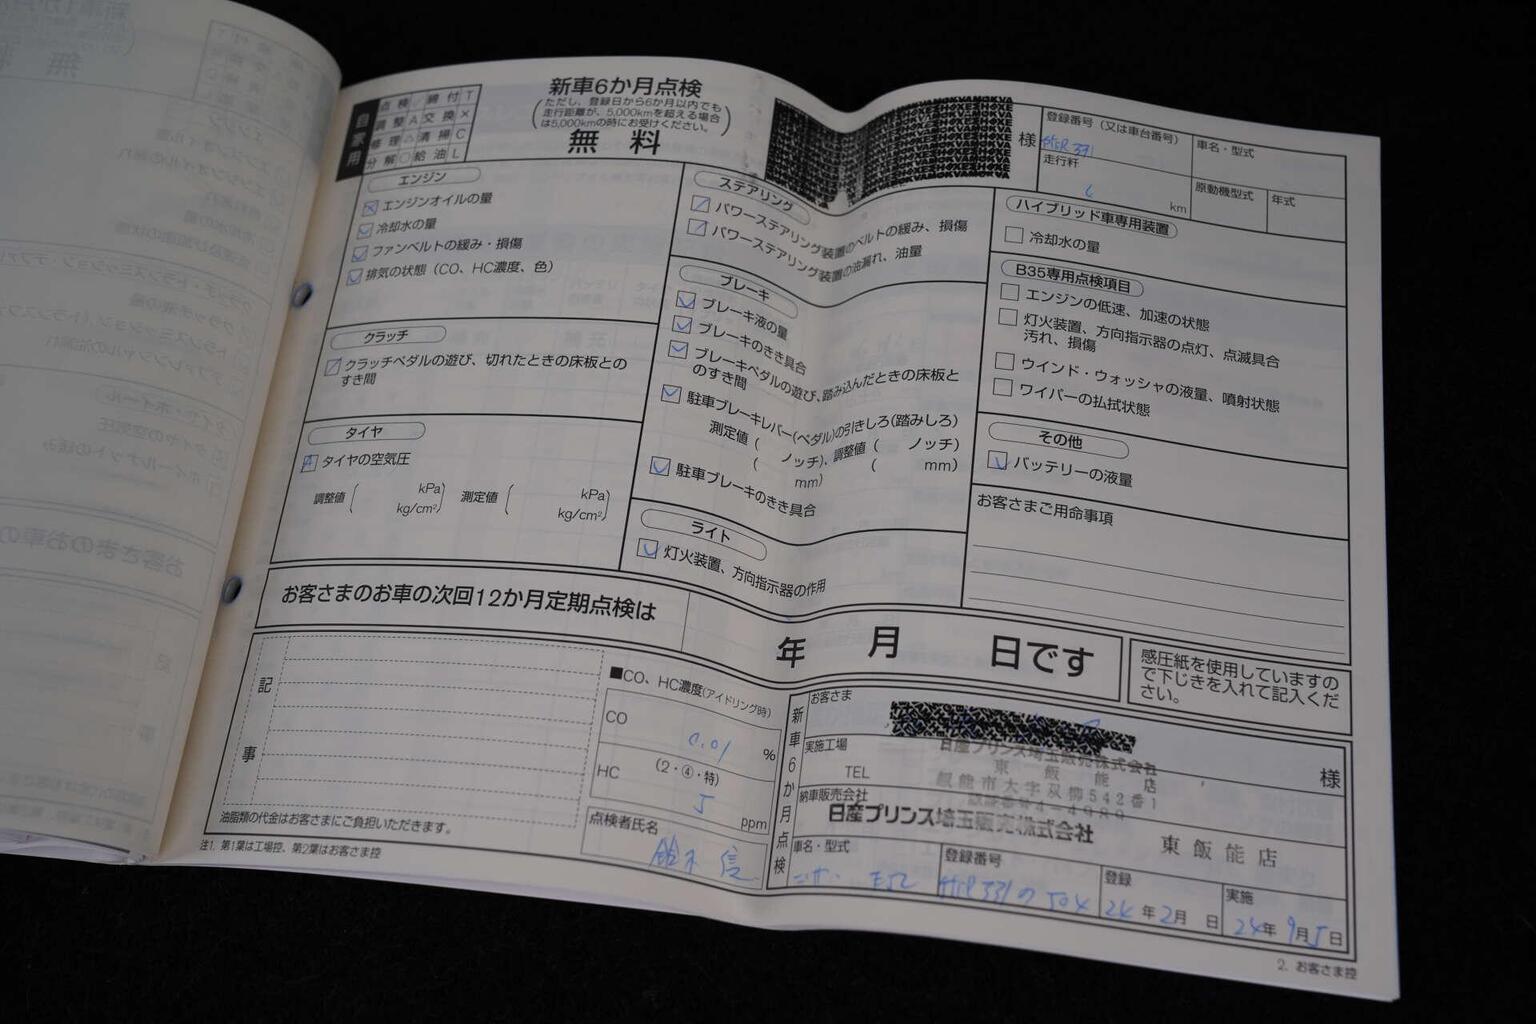 自家用
点検 レ 締付 T
調整 A 交換 ×
修理 △ 清掃 C
分解 ○ 給油 L
新車6か月点検
(ただし、登録日から6か月以内でも
走行距離が、5,000kmを超える場合
は5,000kmの時にお受けください。)
無料
様
登録番号（又は車台番号）
331
車名・型式
走行粁
km
原動機型式
年式
エンジン
エンジンオイルの量
冷却水の量
ファンベルトの緩み・損傷
排気の状態（CO、HC濃度、色）
クラッチ
クラッチペダルの遊び、切れたときの床板との
すき間
タイヤ
タイヤの空気圧
調整値 ( kPa kg/cm²) 測定値 ( kPa kg/cm²)
ステアリング
パワーステアリング装置のベルトの緩み、損傷
パワーステアリング装置の油漏れ、油量
ブレーキ
ブレーキ液の量
ブレーキのきき具合
ブレーキペダルの遊び、踏み込んだときの床板と
のすき間
駐車ブレーキレバー(ペダル)の引きしろ(踏みしろ)
測定値 ( ノッチ)、調整値 ( ノッチ)
( mm) ( mm)
駐車ブレーキのきき具合
ライト
灯火装置、方向指示器の作用
ハイブリッド車専用装置
冷却水の量
B35専用点検項目
エンジンの低速、加速の状態
灯火装置、方向指示器の点灯、点滅具合
汚れ、損傷
ウインド・ウォッシャの液量、噴射状態
ワイパーの払拭状態
その他
バッテリーの液量
お客さまご用命事項
お客さまのお車の次回12か月定期点検は
年 月 日です
感圧紙を使用していますの
で下じきを入れて記入くだ
さい。
記事
油脂類の代金はお客さまにご負担いただきます。
注1. 第1葉は工場控、第2葉はお客さま控
■CO、HC濃度(アイドリング時)
CO
0.01 %
(2・④・特)
HC
5 ppm
点検者氏名
鈴木 信
新車6か月点検
お客さま
様
実施工場
TEL
日産プリンス埼玉販売株式会社
東飯能店
飯能市大字双柳542番1
納車販売会社
日産プリンス埼玉販売株式会社 東飯能店
車名・型式
ニサン E52
登録番号
331 の 504
登録
24年2月 日
実施
24年9月5日
2. お客さま控